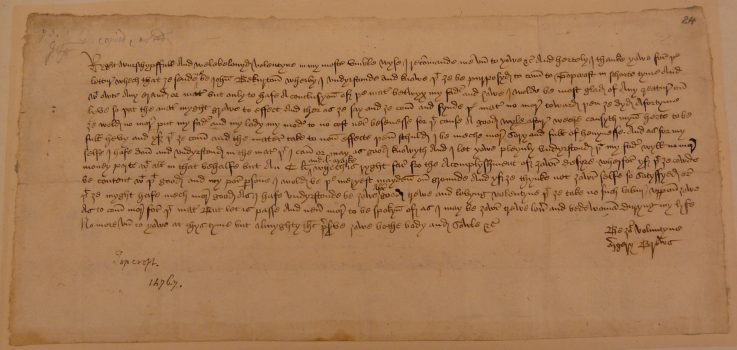 24
Ryght wurschypffull and welebelovyd Volentyne in my moste umble wyse I recommande me un to yowe &c And hertely I thanke yowe for þe
lettyr whech that ye sende me be John Bekurton wherby I undyrstonde and knowe þt ye be purposyd to com to Topcroft in schorte tyme and
wt owte any erand or mater but only to hafe a conclusyon of þe mater betwyx my fader and yowe I wolde be most glad of any creatur on
lyve so þt the mater myght growe to effect And ther as ye say and ye com and fynde þe mater no mor toward þen ye dyd afortyme
ye wold no mor put my fader and my lady my moder to no cost ner besenesse for þt cause a good wyle aftyr weche causyth myn herte to be
full hevy and yf þt ye com and the mater take to non effecte then schuld I be meche mor sory and full of hevynesse And as for my
selfe I hafe don and undyrstond in the mater þt I can or may as good knowyth And I let yowe pleynly undyrstond þt my fader wyll no mor
money parte wt all in that behalfe but an C li and l marke whech is ryght far fro the acomplyshment of yowr desyre Wherfor yf þt ye cowde
be content wt þt good and my por persone I wold be þe meryest mayden on grounde And yf ye thynke not yowr selfe so satysfyed or
þt ye myght hafe mech mor good as I hafe undyrstonde be yowe afor good trewe and lovyng volentyne þt ye take no such labur uppon yowe
as to com mor for þt mater But let is passe and never mor to be spokyn of as I may be yowr trewe lover and bedewoman duryng my lyfe
No more un to yowe at thys tyme but almyghty Jhs preserve yowe bothe body and sowle &c
Be yor Voluntyne
Mergery Brews
Topcroft.
1476/7.